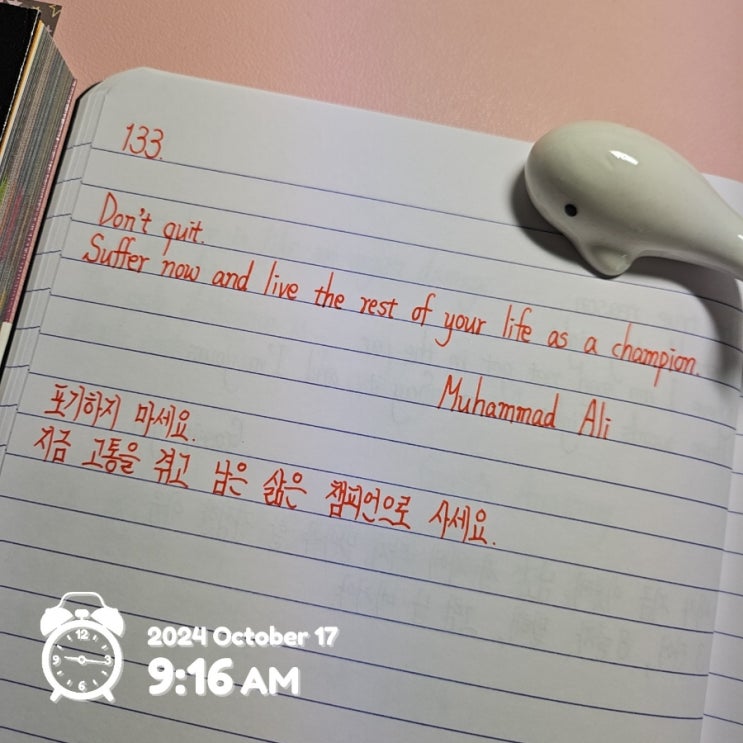 133.
Don't quit.
Suffer now and live the rest of your life as a champion.
Muhammad Ali
포기하지 마세요.
지금 고통을 겪고 남은 삶은 챔피언으로 사세요.
2024 October 17
9:16 AM